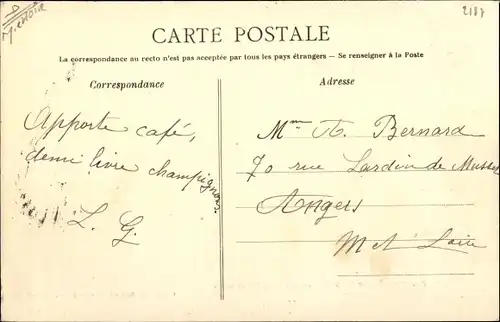 2187
CARTE POSTALE
La correspondance au recto n'est pas acceptée par tous les pays étrangers — Se renseigner à la Poste
Correspondance
Adresse
Apporte café,
demi livre champignon
L. G.
Mme A. Bernard
70 rue Lardin de Musset
Angers
M et Loire